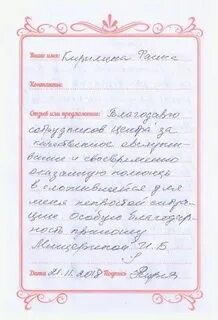 Ваше имя: Кирилина Фаина
Контакты:
Отзыв или предложение: Благодарю
сотрудников Центра за
качественное обслужи-
вание и своевременно
оказанную помощь
в сложившейся для
меня непростой ситуа-
ции. Особую благодар-
ность приношу
И.В.
Дата 21.11.2018 Подпись